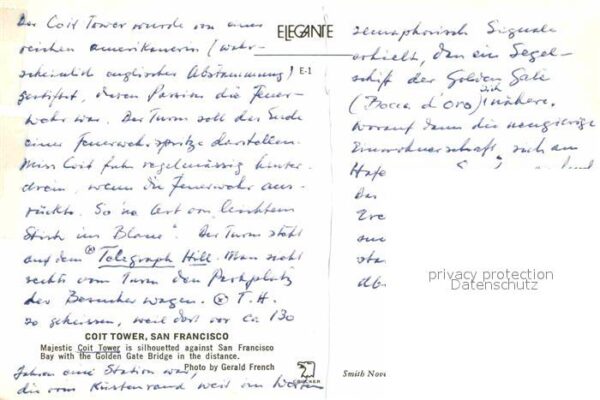 Der Coit Tower wurde von einer
reichen Amerikanerin (wahr-
scheinlich englischer Abstammung)
gestiftet, deren Passion die Feuer-
wehr war. Der Turm soll das Ende
einer Feuerwehrspritze darstellen.
Miss Coit fuhr regelmässig hinter-
drein, wenn die Feuerwehr aus-
rückte. So 'ne Art von leichtem
Stich ins Blaue". Der Turm steht
auf dem ⊗ Telegraph Hill. Man sieht
rechts vom Turm den Parkplatz
der Besucherwagen. ⊗ T.H.
so geheissen, weil dort vor ca 130
COIT TOWER, SAN FRANCISCO
Majestic Coit Tower is silhouetted against San Francisco
Bay with the Golden Gate Bridge in the distance.
Photo by Gerald French
Jahren eine Station war,
die vom Küstenrand weit im Westen
ELEGANTE
E-1
semaphorisch Signale
erhielt, dass ein Segel-
schiff der Golden Gate
(Bocca d'oro) sich nähere.
Worauf dann die neugierige
Einwohnerschaft sich am
Hafe
Das
sta
privacy protection
Datenschutz
CROCKER
Smith Nove